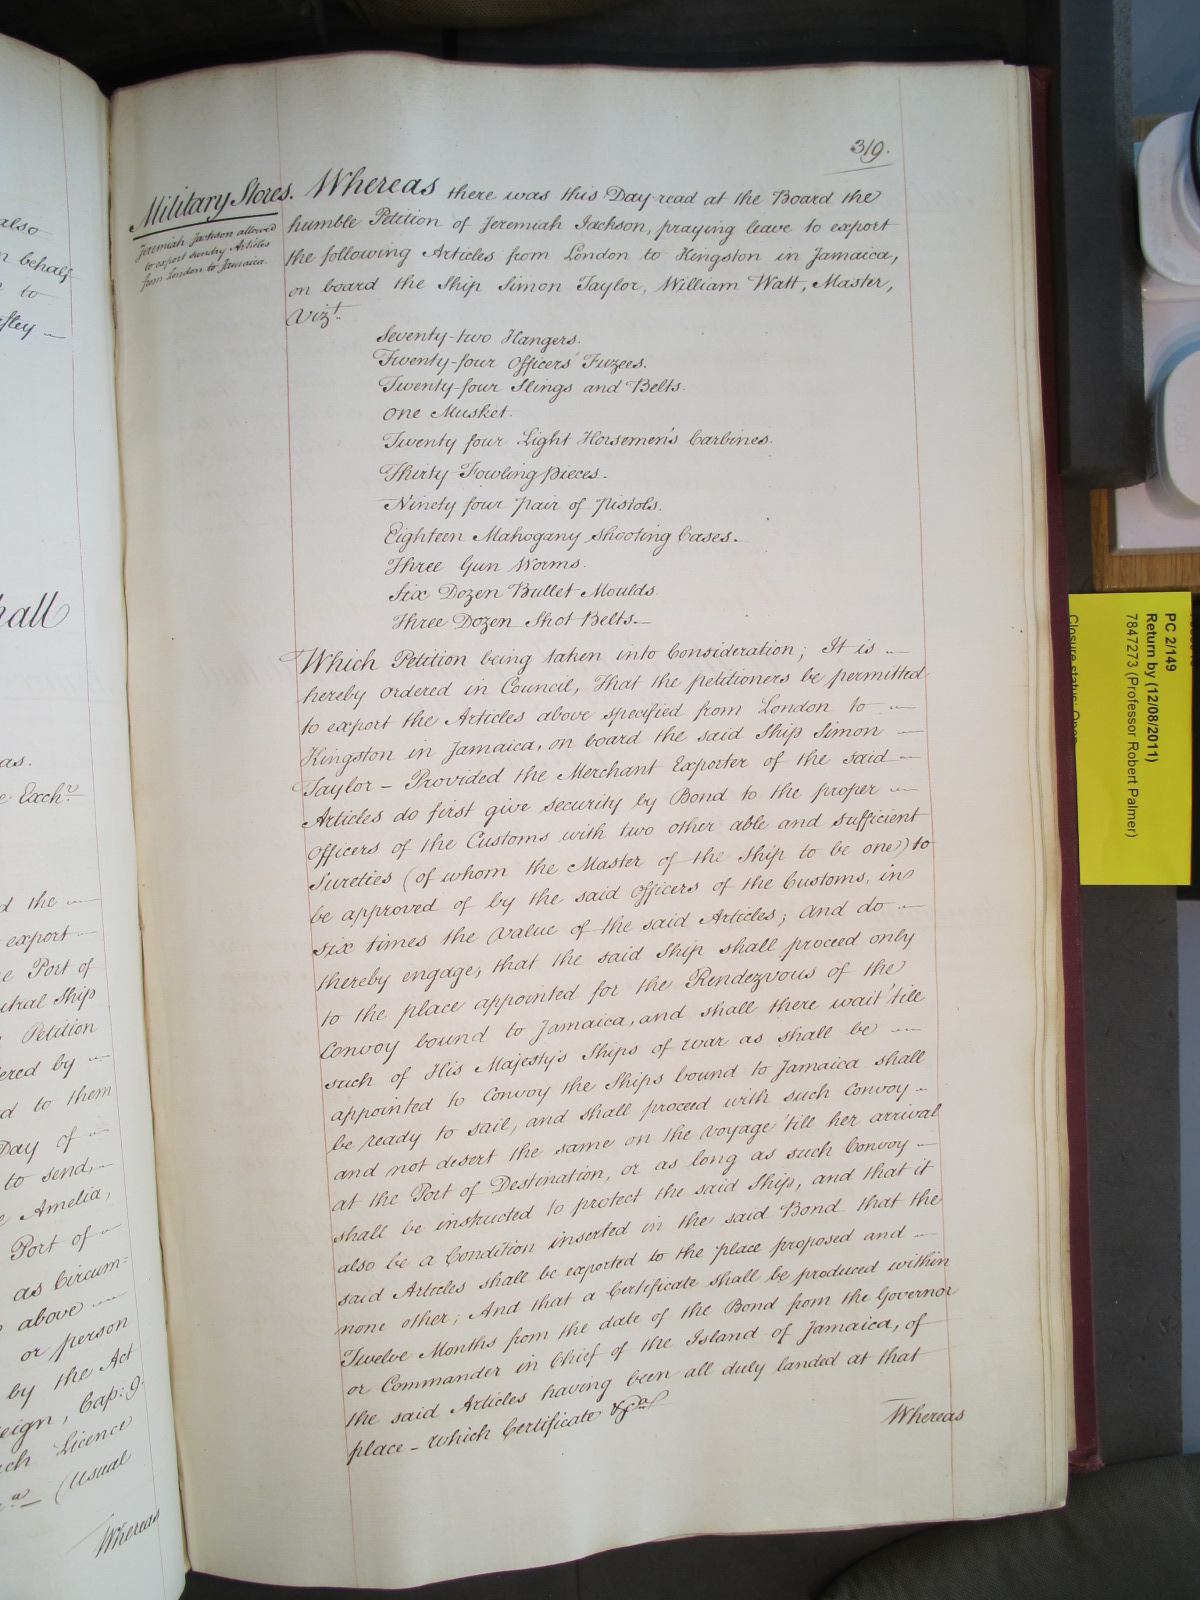 also
behalf
to
hall
as.
Exch.r
d the
export
Port of
utral Ship
Petition
ered by
d to them
Day of
to send,
Amelia,
Port of
as Circum=
above
or person
by the Act
eign, Cap: 9.
ch Licence
(Usual
Whereas
319.
Military Stores.
Jeremiah Jackson allowed
to export sundry Articles
from London to Jamaica.
Whereas there was this Day read at the Board the
humble Petition of Jeremiah Jackson, praying leave to export
the following Articles from London to Kingston in Jamaica,
on board the Ship Simon Taylor, William Watt, Master,
Vizt.
Seventy-two Hangers.
Twenty-four Officers' Fuzees.
Twenty-four Slings and Belts.
One Musket.
Twenty four Light Horsemen's Carbines.
Thirty Fowling pieces.
Ninety four pair of Pistols.
Eighteen Mahogany Shooting Cases.
Three Gun Worms.
Six Dozen Bullet Moulds.
Three Dozen Shot Belts.
Which Petition being taken into Consideration; It is
hereby ordered in Council, That the petitioners be permitted
to export the Articles above specified from London to
Kingston in Jamaica, on board the said Ship Simon
Taylor – Provided the Merchant Exporter of the said
Articles do first give security by Bond to the proper
Officers of the Customs with two other able and sufficient
Sureties (of whom the Master of the Ship to be one) to
be approved of by the said Officers of the Customs, in
six times the value of the said Articles; and do
thereby engage, that the said Ship shall proceed only
to the place appointed for the Rendezvous of the
Convoy bound to Jamaica, and shall there wait 'till
such of His Majesty's Ships of war as shall be
appointed to Convoy the Ships bound to Jamaica shall
be ready to sail, and shall proceed with such Convoy
and not desert the same on the voyage 'till her arrival
at the Port of Destination, or as long as such Convoy
shall be instructed to protect the said Ship, and that it
also be a Condition inserted in the said Bond that the
said Articles shall be exported to the place proposed and
none other; And that a Certificate shall be produced within
Twelve Months from the date of the Bond from the Governor
or Commander in Chief of the Island of Jamaica, of
the said Articles having been all duly landed at that
place – which Certificate &ca
Whereas
PC 2/149
Return by (12/08/2011)
7847273 (Professor Robert Palmer)
Closure status: Open